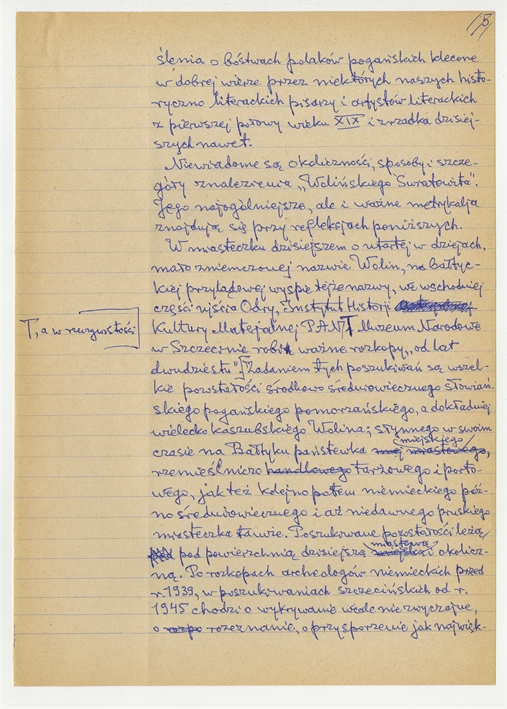 5
ślenia o bóstwach polaków pogańskich klecone
w dobrej wierze przez niektórych naszych histo-
ryczno literackich pisarzy i artystów literackich
z pierwszej połowy wieku XIX i zrzadka dzisiej-
szych nawet.
Niewiadome są okoliczności, sposoby i szcze-
góły znalezienia „Wolińskiego Swatowita".
Jego najogólniejsze, ale i ważne metrykalja
znajdują się przy refleksjach poniższych.
W miasteczku dzisiejszem o utartej w dziejach,
mało zniemczonej nazwie Wolin, na bałtyc-
kiej przylądowej wyspie tejże nazwy, we wschodniej
części ujścia Odry, Instytut Historji
Kultury Materjalnej P.A.N. i Muzeum Narodowe
w Szczecinie robią ważne rozkopy, „od lat
T, a w rzeczywistości
dwudziestu". Zadaniem tych poszukiwań są wszel-
kie pozostałości środkowo średniowiecznego słowiań-
skiego pogańskiego pomorzańskiego, a dokładniej
wielecko kaszubskiego Wolina; słynnego w swoim
czasie na Bałtyku państewka miejskiego,
rzemieślniczo handlowego targowego i porto-
wego, jak też kolejno potem niemieckiego póź-
no średniowiecznego i aż niedawnego pruskiego
miasteczka tamże. Poszukiwane pozostałości leżą
pod powierzchnią dzisiejszą miastową i okolicz-
ną. Po rozkopach archeologów niemieckich przed
r. 1939, w poszukiwaniach szczecińskich od r.
1945 chodzi o wykrywanie wcale nie zwyczajne,
o rozpo rozeznanie, o przysporzenie jak najwięk-